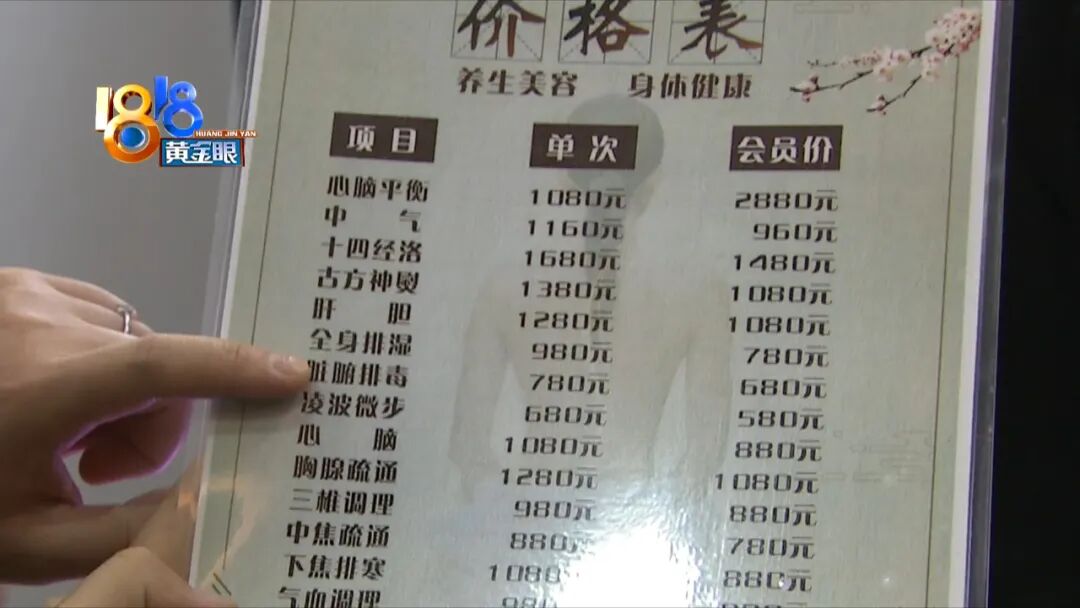 价格表
养生美容 身体健康
1818
HUANG JIN YAN
黄金眼
项目 单次 会员价
心脑平衡 1080元 2880元
中气 1160元 960元
十四经洛 1680元 1480元
古方神熨 1380元 1080元
肝胆 1280元 1080元
全身排湿 980元 780元
脏腑排毒 780元 680元
凌波微步 680元 580元
心脑 1080元 880元
胸腺疏通 1280元 1080元
三椎调理 980元 880元
中焦疏通 880元 780元
下焦排寒 1080 880元
气血调理